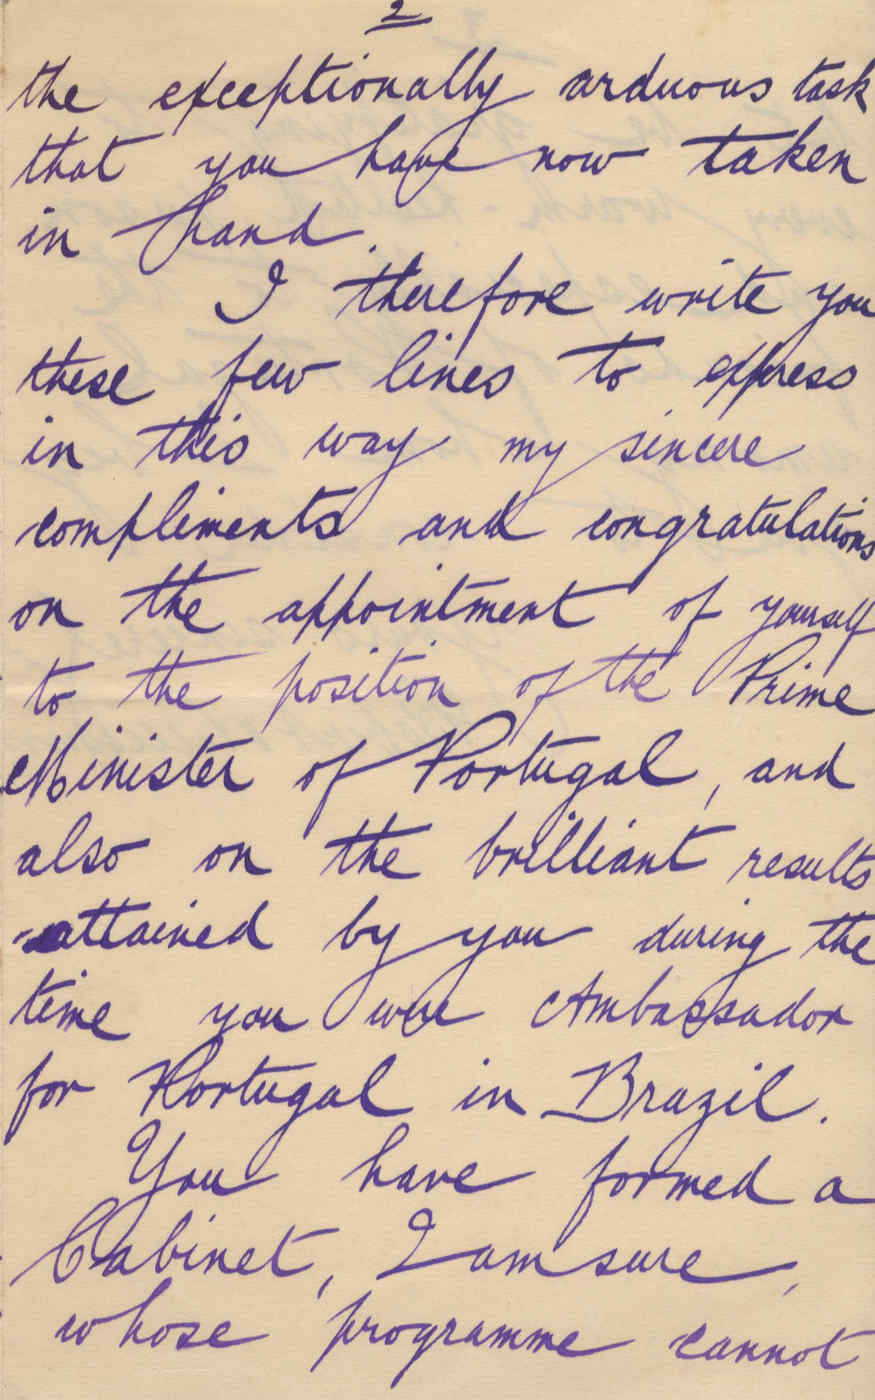 2
the exceptionally arduous task
that you have now taken
in hand.
I therefore write you
these few lines to express
in this way my sincere
compliments and congratulations
on the appointment of yourself
to the position of the Prime
Minister of Portugal, and
also on the brilliant results
attained by you during the
time you were Ambassador
for Portugal in Brazil.
You have formed a
Cabinet, I am sure,
whose programme cannot